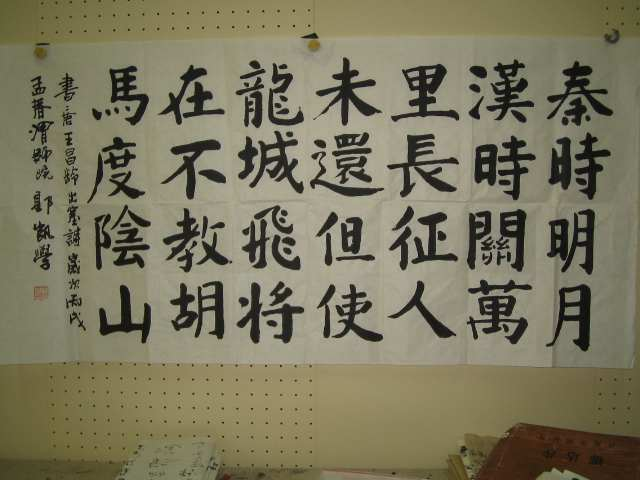 秦時明月
漢時關萬
里長征人
未還但使
龍城飛将
在不教胡
馬度陰山
書唐王昌齡出塞詩歲次丙戌
孟春渭師院郭凱學